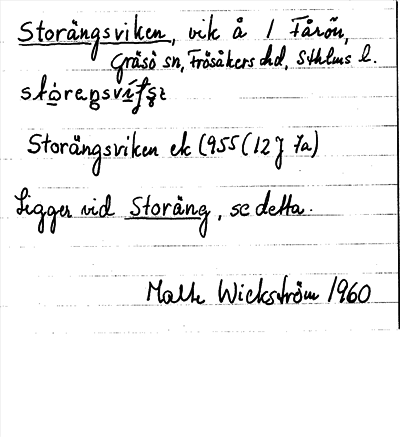 Storängsviken, vik å / Fårön,
Gräsö sn, Frösåkers hd, Sthlms l.
Storängsviken ek 1955 (12J 7a)
Ligger vid Storäng, se detta.
Wickström 1960